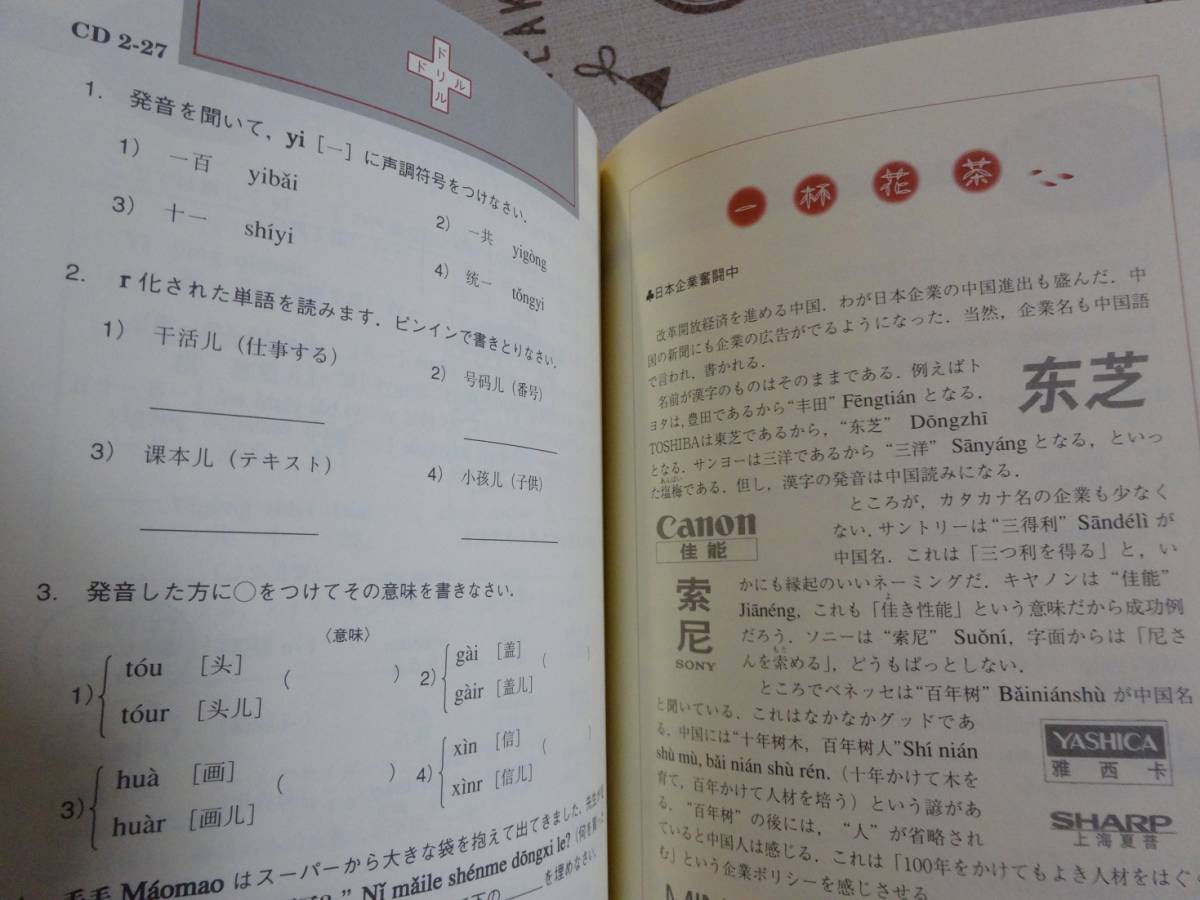 CD 2-27
ドリル
ドリル
1. 発音を聞いて，yi［一］に声調符号をつけなさい．
1) 一百 yibǎi
2) 一共 yigòng
3) 十一 shíyi
4) 统一 tǒngyi
2. r化された単語を読みます．ピンインで書きとりなさい．
1) 干活儿（仕事する）
2) 号码儿（番号）
3) 课本儿（テキスト）
4) 小孩儿（子供）
3. 発音した方に○をつけてその意味を書きなさい．
〈意味〉
1) tóu ［头］ ( )
tóur ［头儿］
2) gài ［盖］ ( )
gàir ［盖儿］
3) huà ［画］ ( )
huàr ［画儿］
4) xìn ［信］ ( )
xìnr ［信儿］
毛毛 Máomao はスーパーから大きな袋を抱えて出てきました．先生が
" Nǐ mǎile shénme dōngxi le?（何を買った
下の を埋めなさい．
一杯花茶
♣日本企業奮闘中
改革開放経済を進める中国．わが日本企業の中国進出も盛んだ．中
国の新聞にも企業の広告がでるようになった．当然，企業名も中国語
で言われ，書かれる．
名前が漢字のものはそのままである．例えばト
ヨタは，豊田であるから“丰田” Fēngtián となる．
TOSHIBAは東芝であるから，“东芝” Dōngzhī
となる．サンヨーは三洋であるから “三洋” Sānyáng となる，といっ
た塩梅である．但し，漢字の発音は中国読みになる．
あんばい
东芝
ところが，カタカナ名の企業も少なく
ない．サントリーは“三得利” Sāndélì が
中国名．これは「三つ利を得る」と，い
かにも縁起のいいネーミングだ．キヤノンは “佳能”
Jiānéng，これも「佳き性能」という意味だから成功例
よ
だろう．ソニーは “索尼” Suǒní，字面からは「尼さ
んを索める」，どうもぱっとしない．
もと
Canon
佳能
索尼
SONY
ところでベネッセは“百年树” Bǎiniánshù が中国名
と聞いている．これはなかなかグッドであ
る．中国には“十年树木，百年树人”Shí nián
shù mù, bǎi nián shù rén.（十年かけて木を
育て，百年かけて人材を培う）という諺があ
る．“百年树” の後には，“人” が省略され
ていると中国人は感じる．これは「100年をかけてもよき人材をはぐく
む」という企業ポリシーを感じさせる．
YASHICA
雅西卡
SHARP
上海夏普